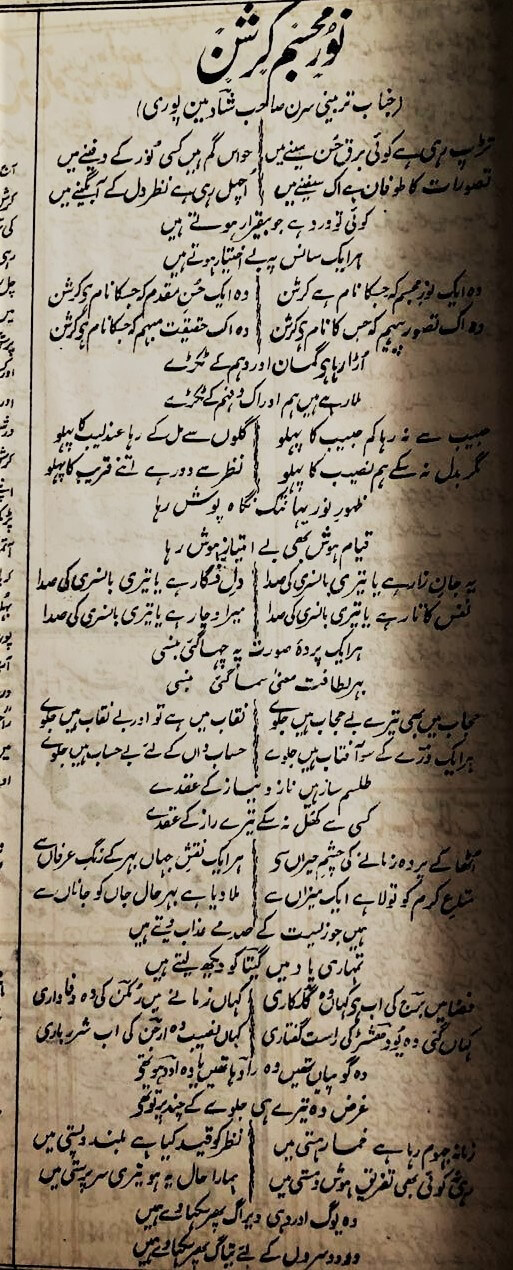 نورِ مجسم کرشن
(جناب تربینی سرن صاحب شاد مین پوری)
تڑپ رہی ہے کوئی برقِ حُسن سینے میں حواس گم ہیں کسی نور کے دفینے میں
تصورات کا طوفان ہے اک سفینے میں اُچھل رہی ہے نظر دل کے آبگینے میں
کوئی تو درد ہے جو بیقرار ہوتے ہیں
ہر ایک سانس پہ بے اختیار ہوتے ہیں
وہ ایک نورِ مجسم کہ جسکا نام ہے کرشن وہ ایک حُسنِ مقدم کہ جسکا نام ہے کرشن
وہ اک تصورِ پیہم کہ جس کا نام ہے کرشن وہ اک حقیقت مبہم کہ جسکا نام ہے کرشن
اُڑا رہا ہے گمان اور وہم کے ٹکڑے
ملا رہے ہیں ہم ادراک و فہم کے ٹکڑے
حبیب سے نہ رہا کم حبیب کا پہلو گلوں سے مل کے رہا عندلیب کا پہلو
مگر بدل نہ سکے ہم نصیب کا پہلو نظر سے دور ہے اتنے قریب کا پہلو
ظہورِ نور یہانتک نگاہ پوش رہا
قیامِ ہوش بھی بے امتیازِ ہوش رہا
یہ جانِ زار ہے یا تیری بانسری کی صدا دلِ فگار ہے یا تیری بانسری کی صدا
نفس کا تار ہے یا تیری بانسری کی صدا میرا وچار ہے یا تیری بانسری کی صدا
ہر ایک پردۂ صورت پہ چھا گئی بنسی
بہر لطافت معنی سما گئی بنسی
حجاب میں بھی تیرے بے حجاب ہیں جلوے نقاب میں ہے تو اور بے نقاب ہیں جلوے
ہر ایک ذرّے کے سو آفتاب ہیں جلوے حساب داں کے لئے بے حساب ہیں جلوے
طلسم ساز ہیں ناز و نیاز کے عقدے
کسی سے کھل نہ سکے تیرے راز کے عقدے
اُٹھا کے پردہ زمانے کی چشمِ حیراں سے ہر ایک نقشِ جہاں بھر کے رنگ عرفاں سے
متاعِ کرم کو تولا ہے ایک میزاں سے ملا دیا ہے بہر حال جاں کو جاناں سے
ہمیں جو زیست کے صدمے عذاب دیتے ہیں
تمہاری یاد میں گیتا کو دیکھ لیتے ہیں
فضا میں برج کی اب ہے کہاں وہ گلکاری کہاں زمانے میں رُکمن کی وہ وفاداری
کہاں گئی وہ یُودھشٹر کی راست گفتاری کہاں نصیب وہ ارجن کی اب شرر باری
وہ گوپیاں تھیں وہ رادہا تھیں یا وہ اودہو تھے
غرض وہ تیرے ہی جلوے کے چند پرتو تھے
زمانہ جھوم رہا ہے خمارِ ہستی میں نظر کو قید کیا ہے بلند و پستی میں
رہی کوئی بھی تفریق ہوش و مستی میں ہمارا حال یہ ہو تیری سرپرستی میں
وہ یوگ اور وہی ویراگ پھر سکھا دے ہمیں
دوسروں کے لئے تیاگ پھر سکھا دے ہمیں